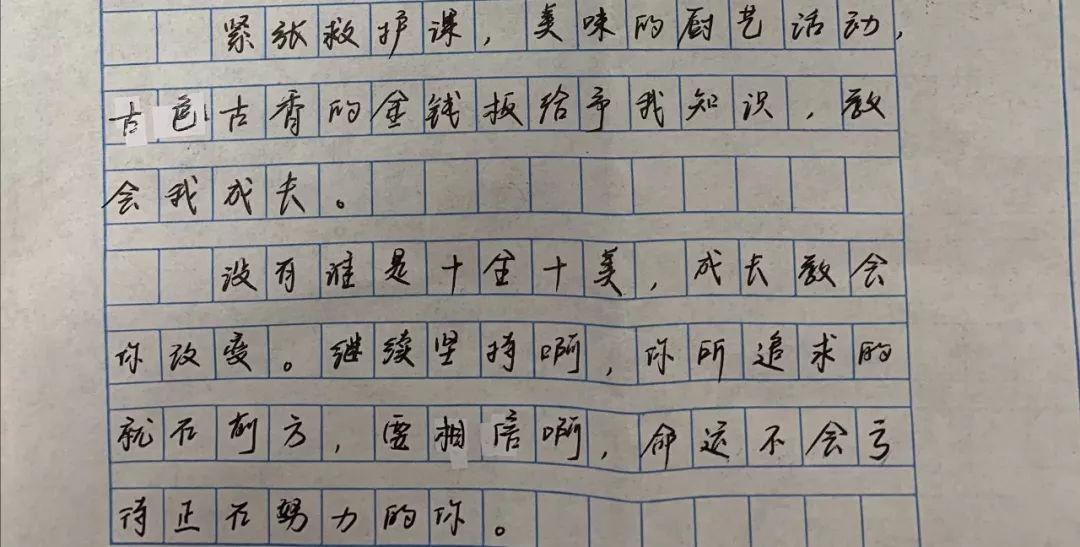 紧张救护课，美味的厨艺活动，
古色古香的金钱板给予我知识，教
会我成长。
没有谁是十全十美，成长教会
你改变。继续坚持啊，你所追求的
就在前方，要相信啊，命运不会亏
待正在努力的你。